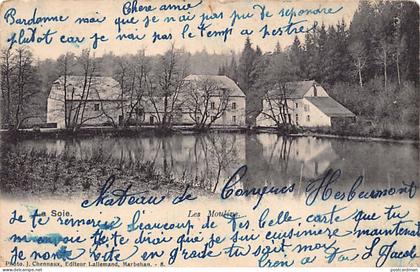 Chère amie
Bardonne moi que je n'ai pas pu de repondre
plutôt car je n'ai pas le temps a perdre
Chateau de Herbeumont
La Soie. Les Moulins
Je te remercie beaucoup de ta belle carte que tu
m'a envoie Je te dirai que je sui cuisinière maintenant
Je monte vite en grade tu soit mon
Photo. J. Chennaux, Editeur Lallemand, Marbehan. - 8.